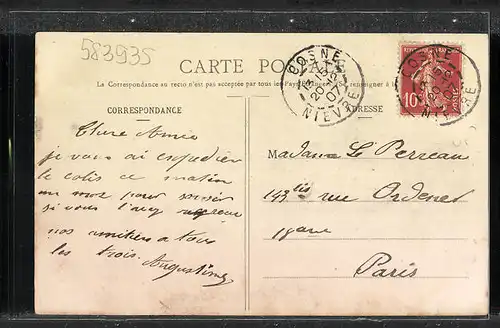 583935
CARTE POSTALE
La Correspondance au recto n'est pas acceptée par tous les pays étrangers. (Se renseigner à
CORRESPONDANCE
ADRESSE
COSNE
NIEVRE
07
10
POSTES
Chère Amie
je vous ai expédier
le colis ce matin
un mot pour savoir
si vous l'avez
nos amitiés a tous
les trois. Augustine
Madame Le Perreau
143 bis rue Ordener
Paris